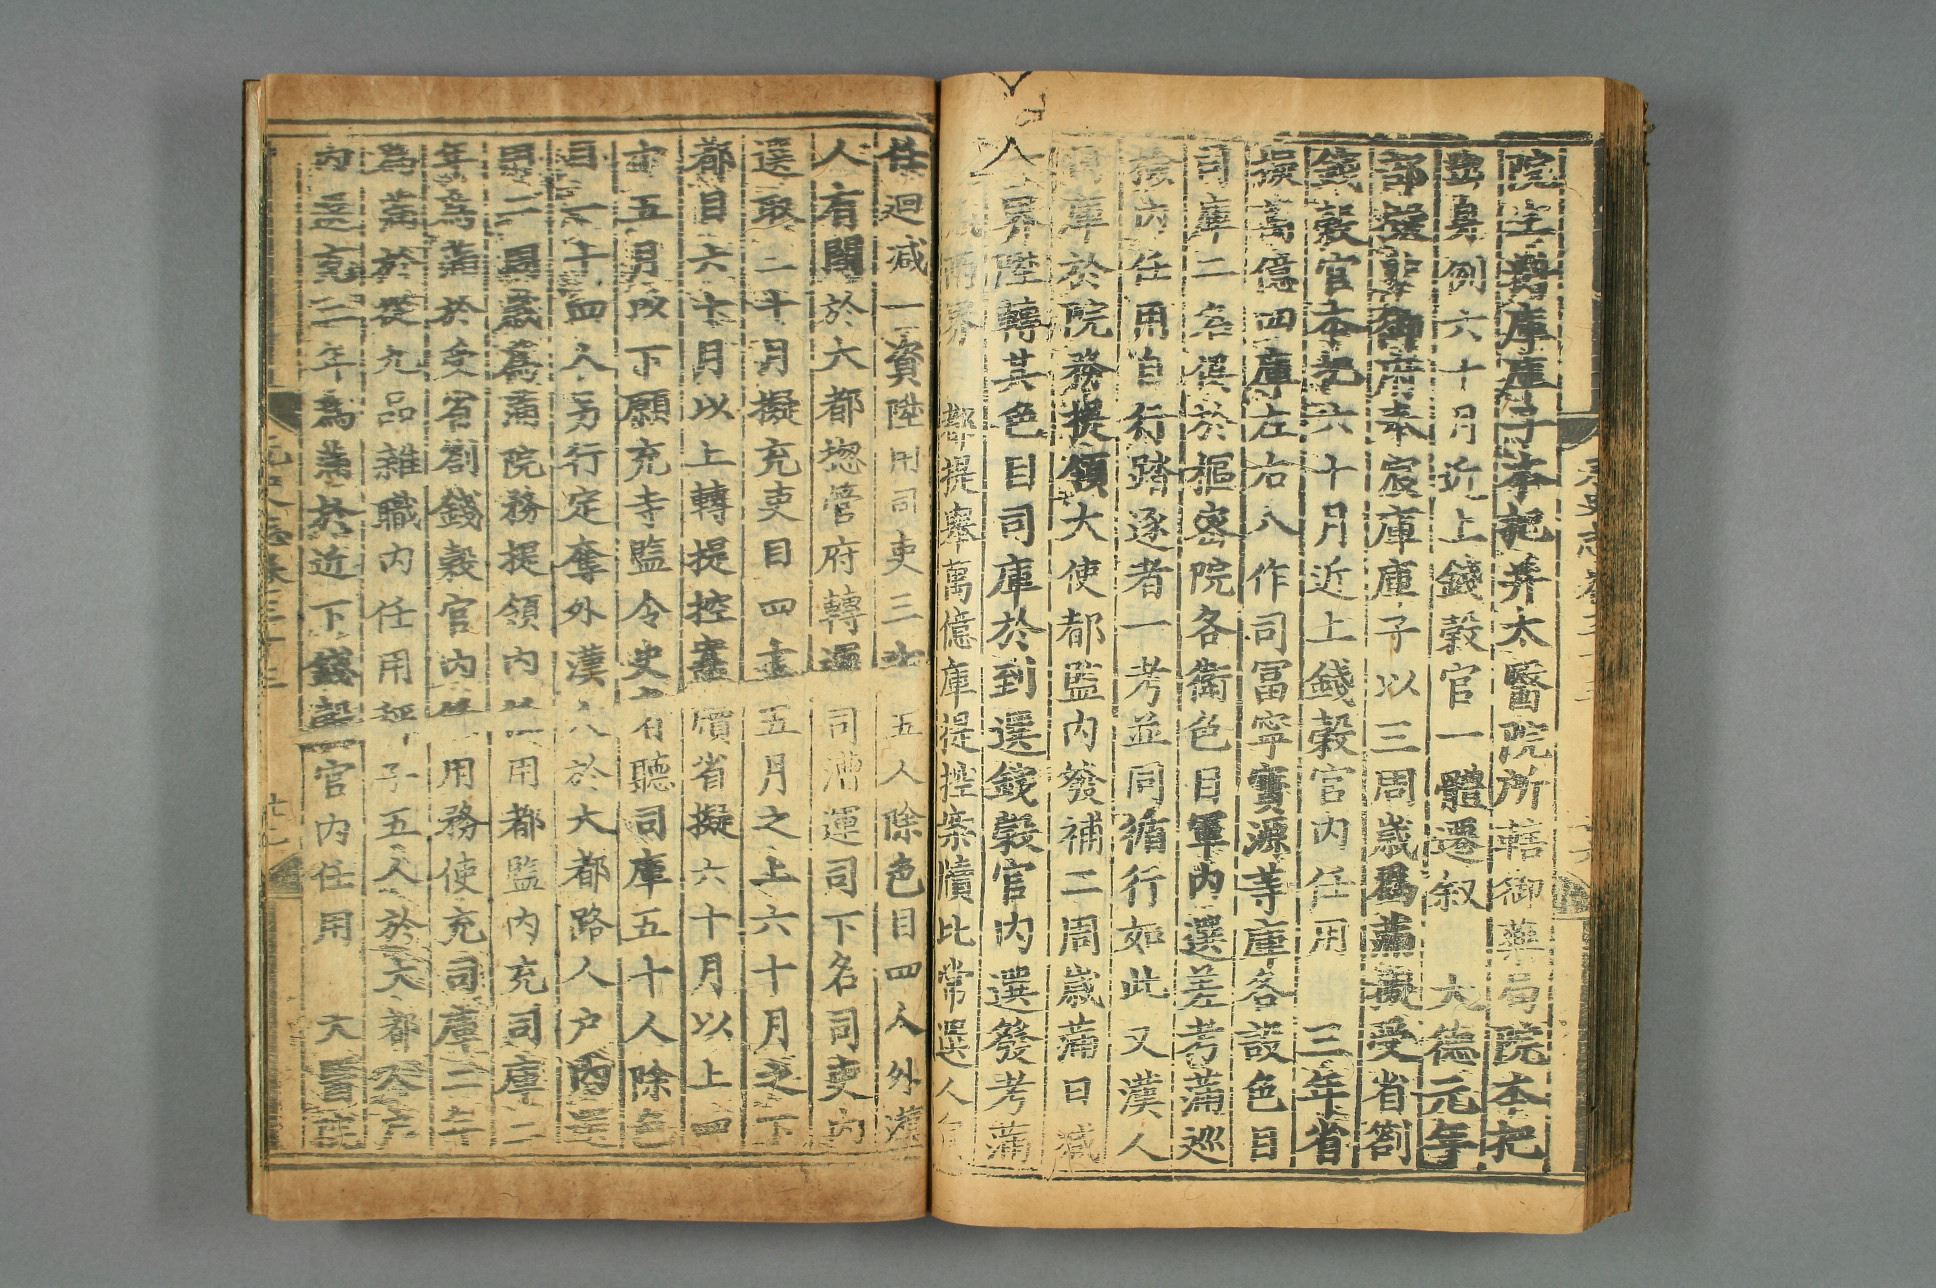 院生料庫庫子本把并太醫院所轄御藥局院本把
典具例六十月近上錢穀官一體遷叙　大德元年
部擬御府奉宸庫庫子以三周歲爲滿擬受省劄
錢穀官本把六十月近上錢穀官内任用　三年省
擬萬億四庫左右八作司富寧寶源等庫各設色目
司庫二名選於樞密院各衛色目軍内選差考滿巡
檢内任用自行踏逐者一考並同循行如此又漢人
司庫於院務提領大使都監内發補二周歲滿日減
人界陞轉其色目司庫於到選錢穀官内選發考滿
都提舉萬億庫提控案牘比常選人
任迴减一資陞用司吏三十五人除色目四人外漢
人有闕於大都揔管府轉運司漕運司下名司吏内
選取二十月擬充吏目四十五月之上六十月之下
都目六十月以上轉提控案牘省擬六十月以上四
十五月以下願充寺監令史者聽司庫五十人除色
目一十四人另行定奪外漢人於大都路人户内選
用二周歲爲滿院務提領内任用都監内充司庫二
年爲滿於受省劄錢穀官内任用務使充司庫二年
爲滿於從九品雜職内任用秤子五人於大都人户
内選充二年爲滿於近下錢穀官内任用　大醫院
元史志卷三十三